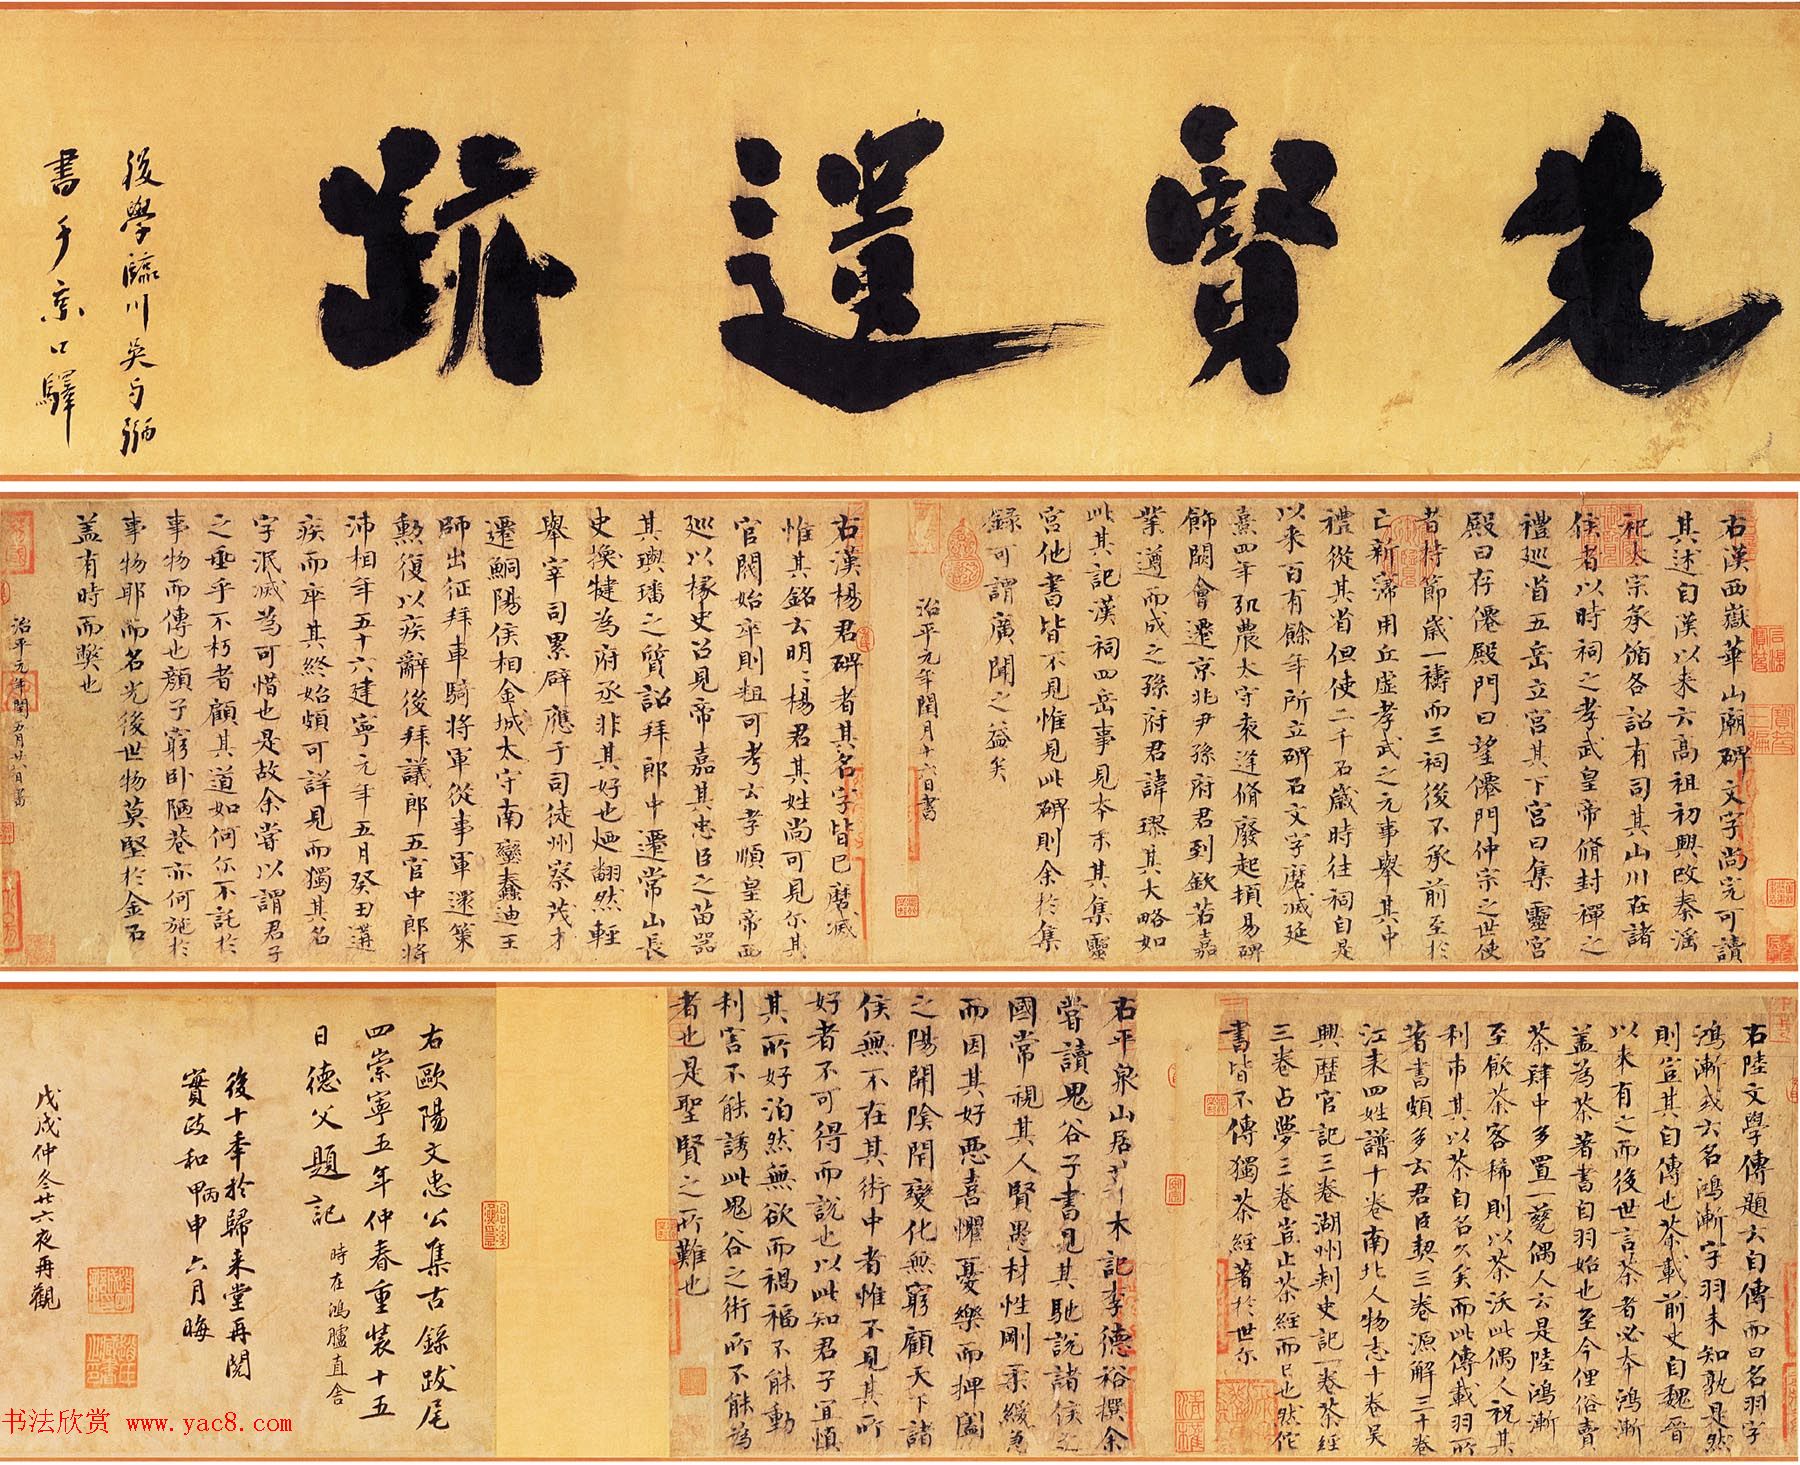 先賢遺跡
後學臨川吳与弼
書于京口驛
右漢西嶽華山廟碑文字尚完可讀
其述自漢以來云高祖初興改秦淫
祀太宗承循各詔有司其山川在諸
侯者以時祠之孝武皇帝脩封禪之
禮巡省五岳立宮其下宮曰集靈宮
殿曰存僊殿門曰望僊門仲宗之世使
者持節歲一禱而三祠後不承前至於
亡新寖用丘虛孝武之元事舉其中
禮從其省但使二千石歲時往祠自是
以來百有餘年所立碑石文字磨滅延
熹四年弘農太守袁逢脩廢起頓易碑
飾闕會遷京兆尹孫府君到欽若嘉
業遵而成之孫府君諱璆其大略如
此其記漢祠四岳事見本末其集靈
宮他書皆不見惟見此碑則余於集
錄可謂廣聞之益矣
治平元年閏月十六日書
右漢楊君碑者其名字皆已磨滅
惟其銘云明明楊君其姓尚可見尔其
官閥始卒則粗可考云孝順皇帝西
巡以椽史召見帝嘉其忠臣之苗器
其璵璠之質詔拜郎中遷常山長
史換犍為府丞非其好也迺翻然輕
舉宰司累辟應于司徒州察茂才
遷鮦陽侯相金城太守南蠻蠢迪王
師出征拜車騎將軍從事軍還策
勳復以疾辭後拜議郎五官中郎將
沛相年五十六建寧元年五月癸丑遘
疾而卒其終始頗可詳見而獨其名
字泯滅為可惜也是故余嘗以謂君子
之垂乎不朽者顧其道如何尔不託於
事物而傳也顏子窮卧陋巷亦何施於
事物耶而名光後世物莫堅於金石
盖有時而獘也
治平元年閏五月廿八日書
右陸文學傳題云自傳而曰名羽字
鴻漸或云名鴻漸字羽未知孰是然
則豈其自傳也茶載前史自魏晉
以來有之而後世言茶者必本鴻漸
盖為茶著書自羽始也至今俚俗賣
茶肆中多置一甆偶人云是陸鴻漸
至飲茶客稀則以茶沃此偶人祝其
利市其以茶自名久矣而此傳載羽所
著書頗多云君臣契三卷源解三十卷
江表四姓譜十卷南北人物志十卷吳
興歷官記三卷湖州刺史記一卷茶經
三卷占夢三卷豈止茶經而已也然佗
書皆不傳獨茶經著於世尔
右平泉山居草木記李德裕撰余
嘗讀鬼谷子書見其馳說諸侯之
國常視其人賢愚材性剛柔緩急
而因其好惡喜懼憂樂而捭闔
之陽開陰閉變化無窮顧天下諸
侯無不在其術中者惟不見其所
好者不可得而說也以此知君子宜慎
其所好泊然無欲而禍福不能動
利害不能誘此鬼谷之術所不能為
者也是聖賢之所難也
右歐陽文忠公集古錄跋尾
四崇寧五年仲春重裝十五
日德父題記 時在鴻臚直舍
後十年於歸來堂再閱
實政和甲丙申六月晦
戊戌仲冬廿六夜再觀
书法欣赏 www.yac8.com